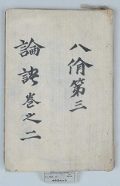 八佾第三
論語巻之二